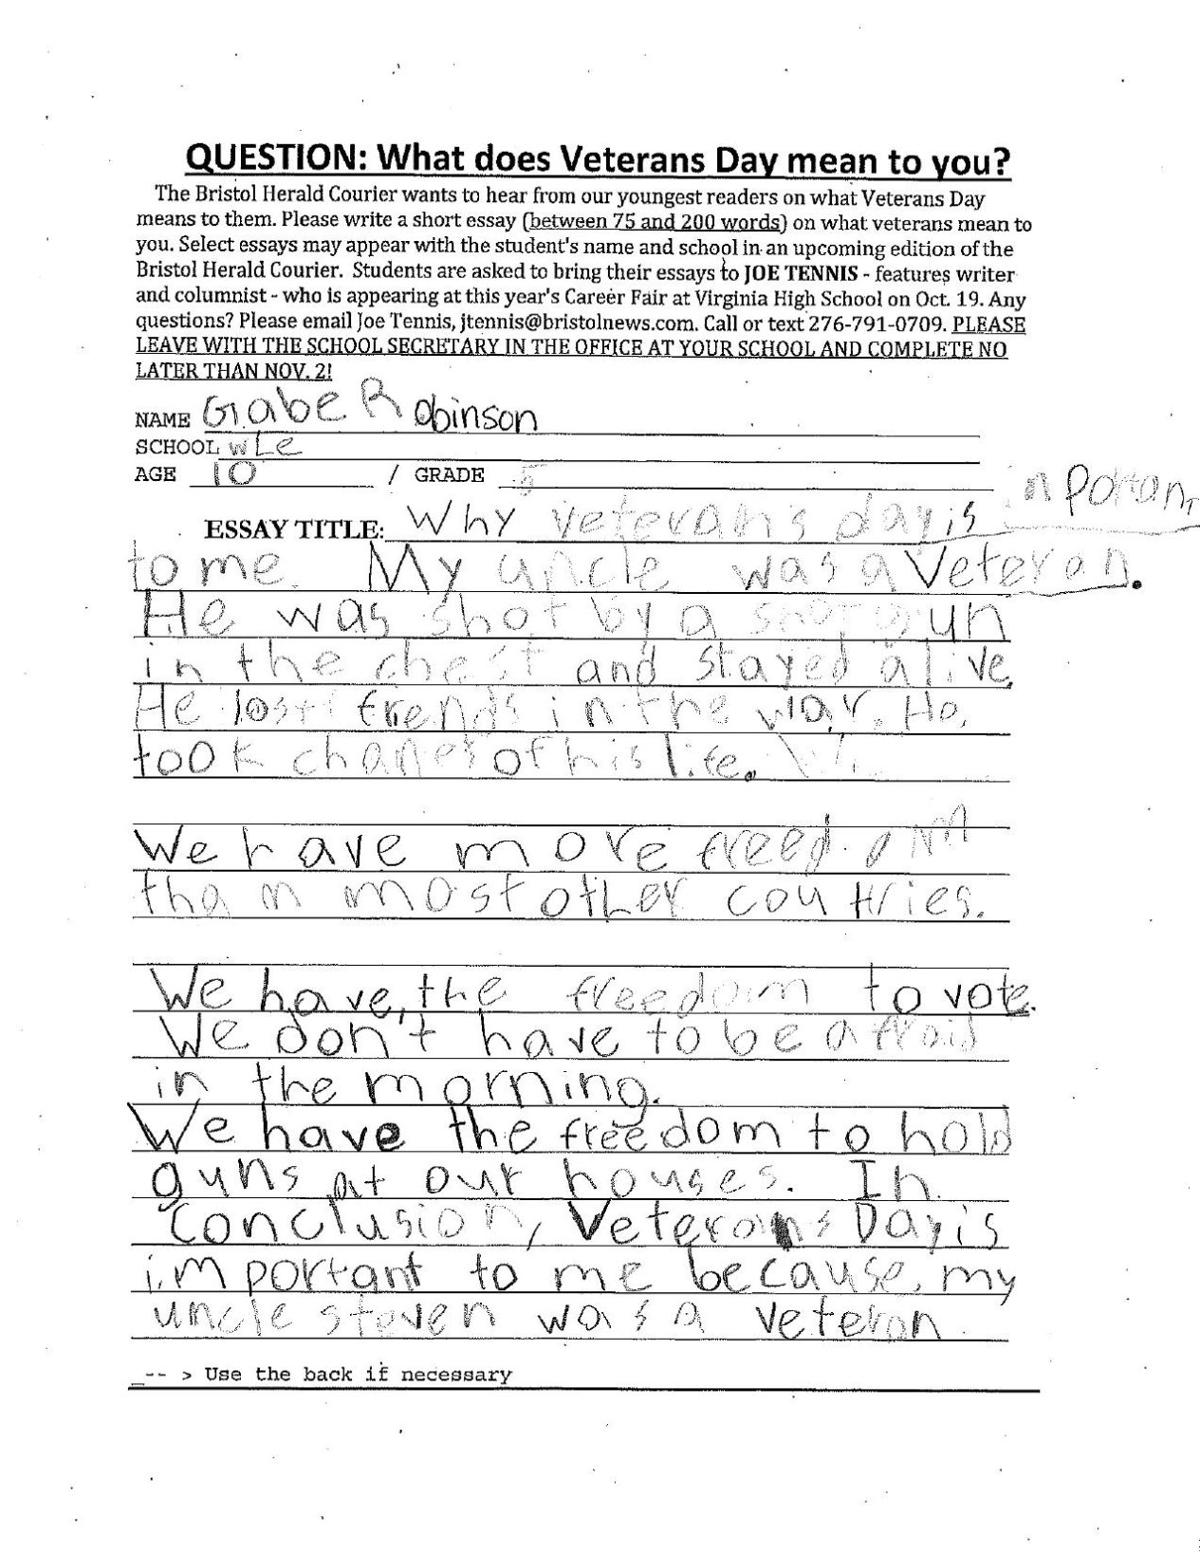 QUESTION: What does Veterans Day mean to you?
The Bristol Herald Courier wants to hear from our youngest readers on what Veterans Day
means to them. Please write a short essay (between 75 and 200 words) on what veterans mean to
you. Select essays may appear with the student's name and school in an upcoming edition of the
Bristol Herald Courier. Students are asked to bring their essays to JOE TENNIS - features writer
and columnist - who is appearing at this year's Career Fair at Virginia High School on Oct. 19. Any
questions? Please email Joe Tennis, jtennis@bristolnews.com. Call or text 276-791-0709. PLEASE
LEAVE WITH THE SCHOOL SECRETARY IN THE OFFICE AT YOUR SCHOOL AND COMPLETE NO
LATER THAN NOV. 2!
NAME Gabe Robinson
SCHOOL WLe
AGE 10 / GRADE 5
ESSAY TITLE: Why veterans day is inportant
to me. My uncle was a Veteran.
He was shot by a shotgun
in the chest and stayed alive.
He lost frends in the war. He
took chanes of his life.
We have more freedom
than most other countries.
We have the freedom to vote.
We don't have to be afraid
in the morning.
We have the freedom to hold
guns at our houses. In
conclusion, Veterans Day is
important to me because my
uncle steven was a veteran
_-- > Use the back if necessary